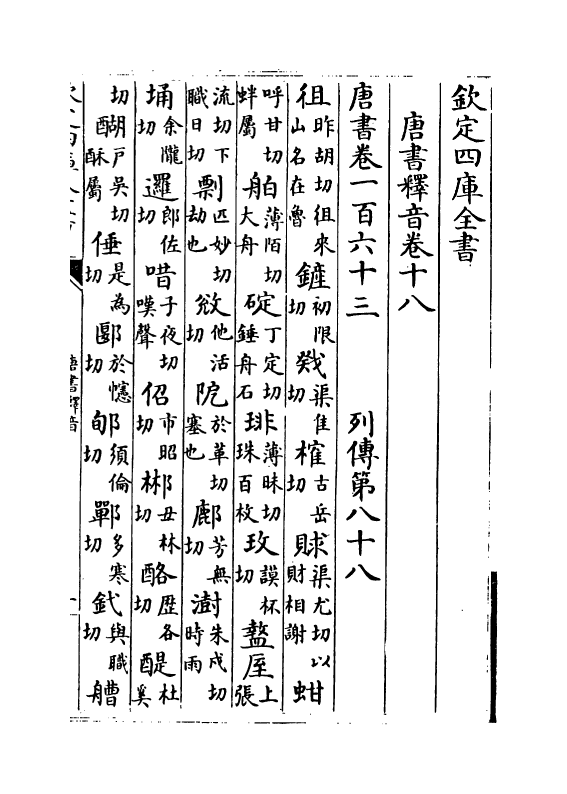 欽定四庫全書
唐書釋音卷十八
唐書卷一百六十三 列傳第八十八
徂昨胡切徂來山名在魯 鏟初限切 戣渠隹切 榷古岳切 賕渠尤切以財相謝 蚶
呼甘切蚌屬 舶薄陌切大舟 碇丁定切錘舟石 琲薄昧切珠百枚 玫謨杯切 盩厔上張
流切下職日切 剽匹妙切劫也 敚他活切 阨於革切塞也 鄜芳無切 澍朱戍切時雨
埇余隴切 邏郎佐切 唶子夜切嘆聲 佋市昭切 郴丑林切 酪歷各切 醍杜奚
切 醐戶吳切酥屬 倕是為切 郾於幰切 郇須倫切 鄲多寒切 釴與職切 艚
唐書釋音